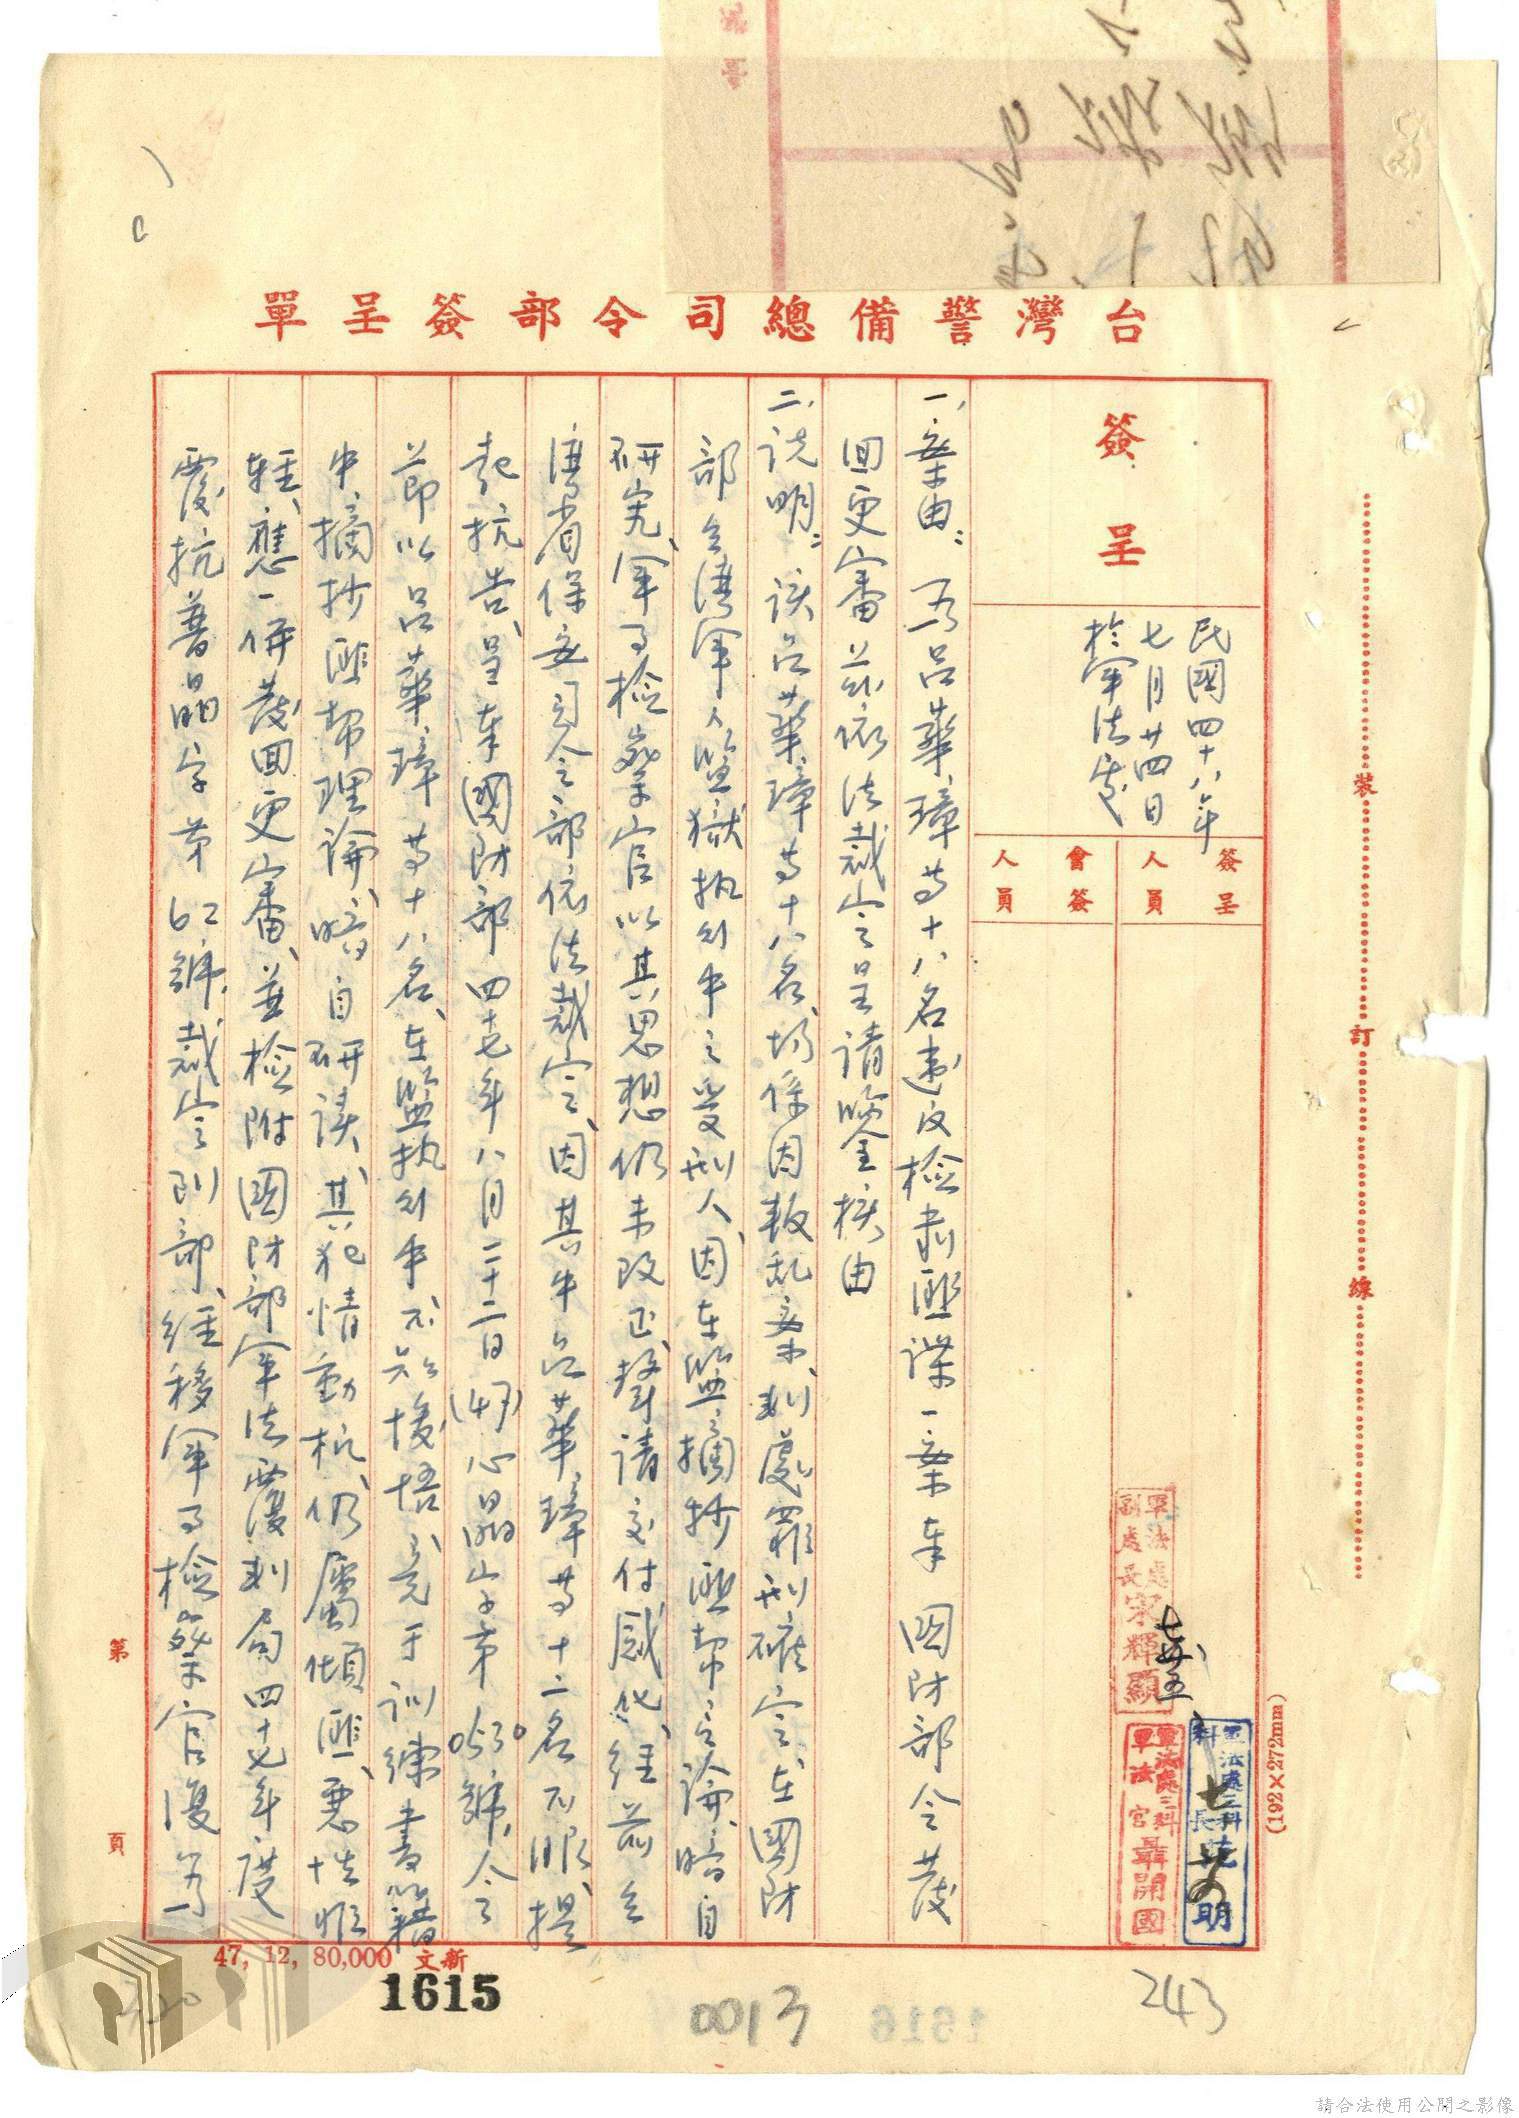 台灣警備總司令部簽呈單
簽呈
民國四十八年
七月廿四日
於軍法處
簽呈人員
會簽人員
一、案由：為呂華璋等十八名違反檢肅匪諜一案奉 國防部令發
回更審茲依法裁定呈請鑒核由
二、說明：該呂華璋等十八名，均係因叛乱案，判處罪刑確定在國防
部台灣軍人監獄執行中之受刑人，因在監摘抄匪幫言論，暗自
研究，軍事檢察官以其思想仍未改正，聲請交付感化，經前台
灣省保安司令部依法裁定，因其中呂華璋等十二名不服，提
起抗告，呈奉國防部四七年八月二十二日(47)心晶字第0530號，令
節以呂華璋等十八名，在監执行中不知悛悟，竟于訓練書籍
中，摘抄匪幫理論，暗自研讀，其犯情動机，仍屬傾匪，惡性雖
輕，應一併發回更審，並檢附國防部軍法覆判局四十七年度
覆抗普晶字第62號，裁定到部，經移軍事檢察官復為
軍法處副處長宋輝顯
軍法處三科軍法官聶開國
軍法處三科科長
明
裝
訂
線
第
頁
(192×272mm)
47, 12, 80,000 文新
1615
0013
243
請合法使用公開之影像